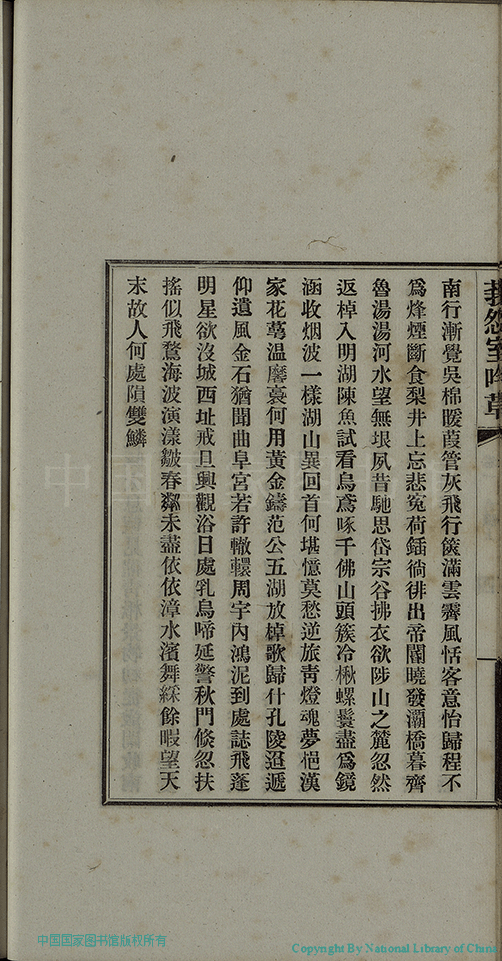 南行漸覺吳棉暖葭管灰飛行篋滿雲霽風恬客意怡歸程不
爲烽煙斷食梨井上忘悲寃荷鍤徜徘出帝閽曉發灞橋暮齊
魯湯湯河水望無垠夙昔馳思岱宗谷拂衣欲陟山之麓忽然
返棹入明湖陳魚試看烏鳶啄千佛山頭簇冷楸螺鬟盡爲鏡
涵收烟波一樣湖山異回首何堪憶莫愁逆旅靑燈魂夢悒漢
家花萼溫麐裹何用黃金鑄范公五湖放棹歌歸什孔陵逗遞
仰遺風金石猶聞曲阜宮若許轍轘周宇內鴻泥到處誌飛蓬
明星欲沒城西址戒旦興觀浴日處乳烏啼延警秋門倏忽扶
搖似飛騖海波演漾皺春粼未盡依依漳水濱舞綵餘暇望天
末故人何處隕雙鱗
中国国家图书馆版权所有
Copyright By National Library of China